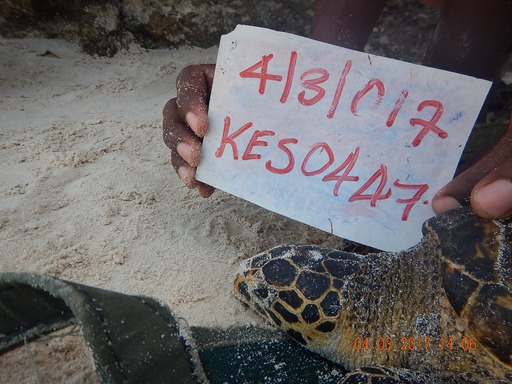 4/3/017
KES0447.
04.03.2017 14:06